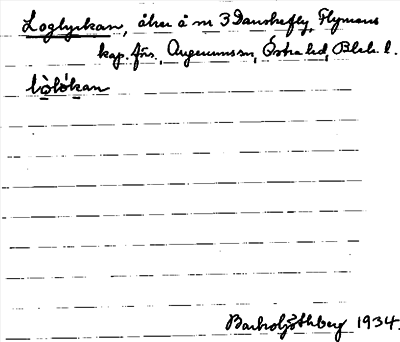 Loglyckan, åker å nr 3 Danskefly, Flymens
kap. förs., Augerums sn, Östra hd, Blek. l.
lò̀lókan
Barbro Söthberg 1934.